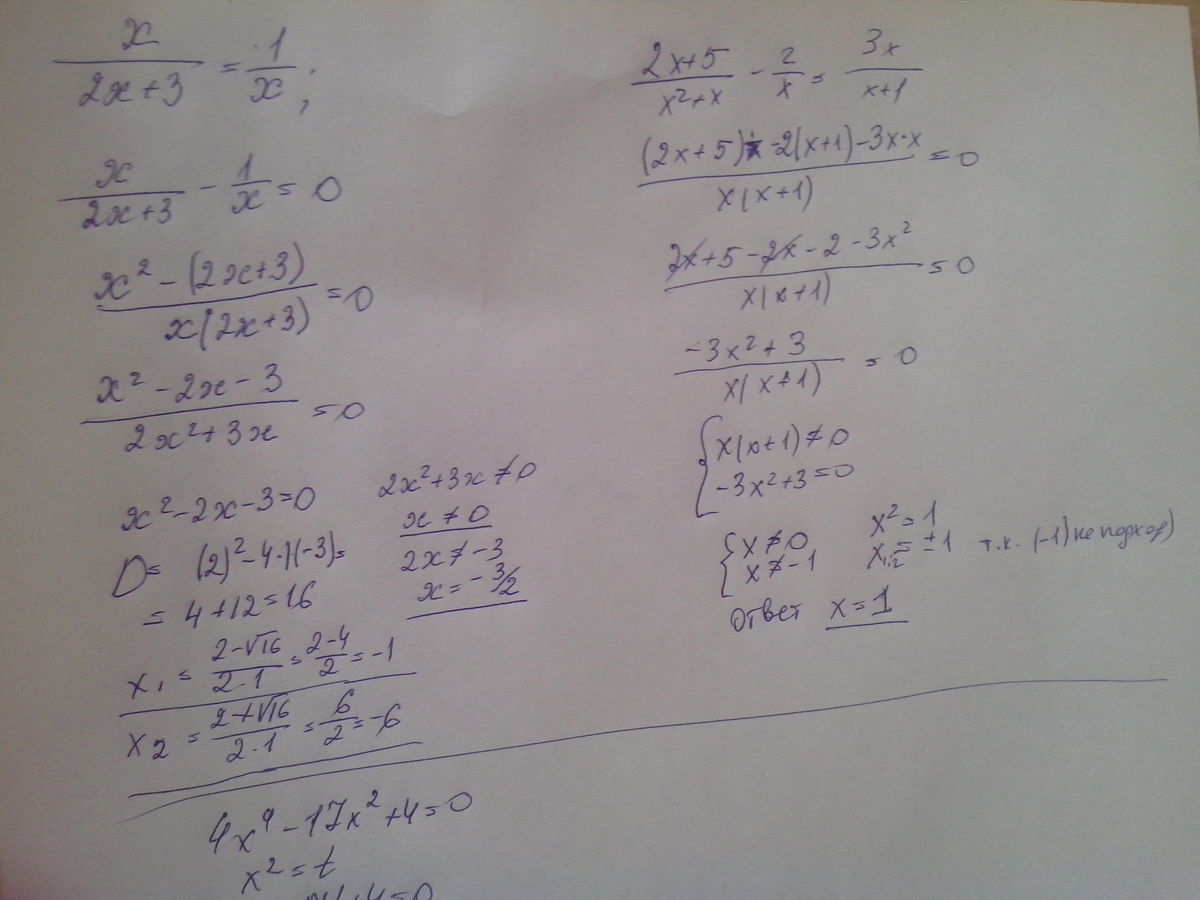 x/(2x+3) = 1/x;
x/(2x+3) - 1/x = 0
(x² - (2x+3))/(x(2x+3)) = 0
(x² - 2x - 3)/(2x² + 3x) = 0
x² - 2x - 3 = 0
D = (2)² - 4·1(-3) =
= 4 + 12 = 16
x₁ = (2-√16)/(2·1) = (2-4)/2 = -1
x₂ = (2+√16)/(2·1) = 6/2 = -6
2x² + 3x ≠ 0
x ≠ 0
2x ≠ -3
x = -3/2
(2x+5)/(x²+x) - 2/x = 3x/(x+1)
((2x+5) - 2(x+1) - 3x·x)/(x(x+1)) = 0
(2x + 5 - 2x - 2 - 3x²)/(x(x+1)) = 0
(-3x² + 3)/(x(x+1)) = 0
{ x(x+1) ≠ 0
-3x² + 3 = 0
{ x ≠ 0
x ≠ -1
x² = 1
x₁,₂ = ±1 т.к. (-1) не подход)
Ответ x = 1
4x⁴ - 17x² + 4 = 0
x² = t